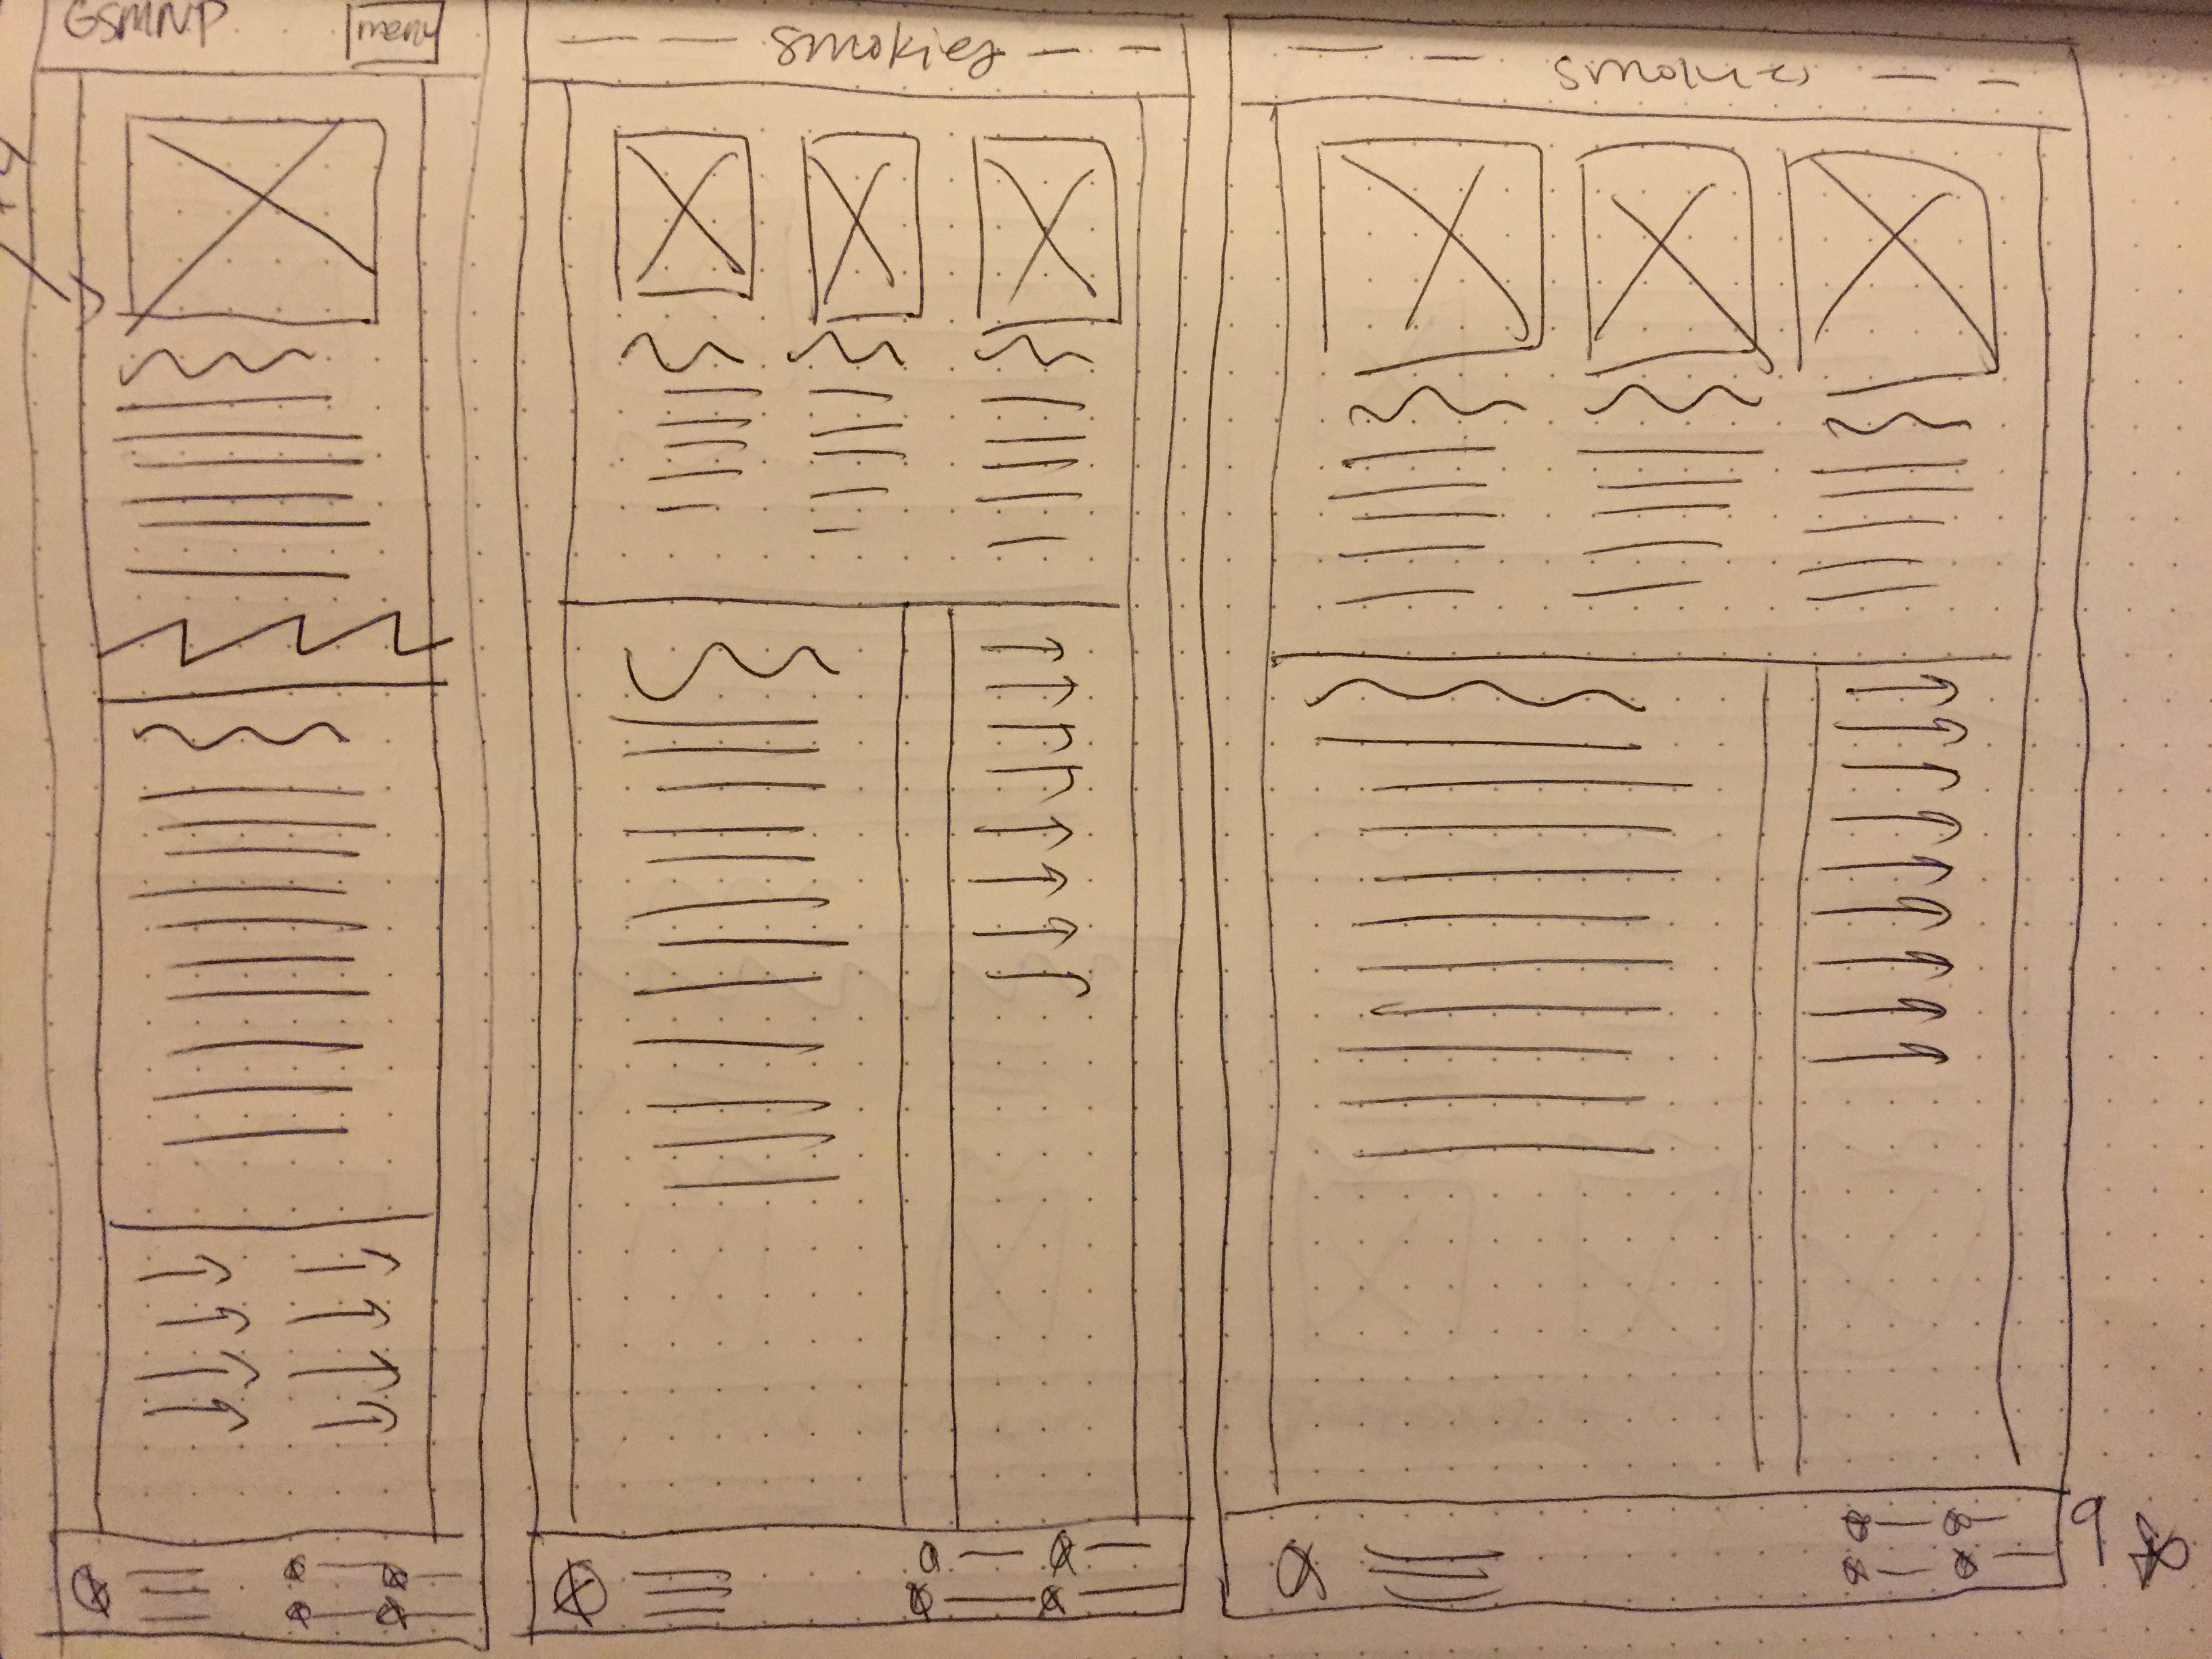 GSMNP
menu
smokies
smokies